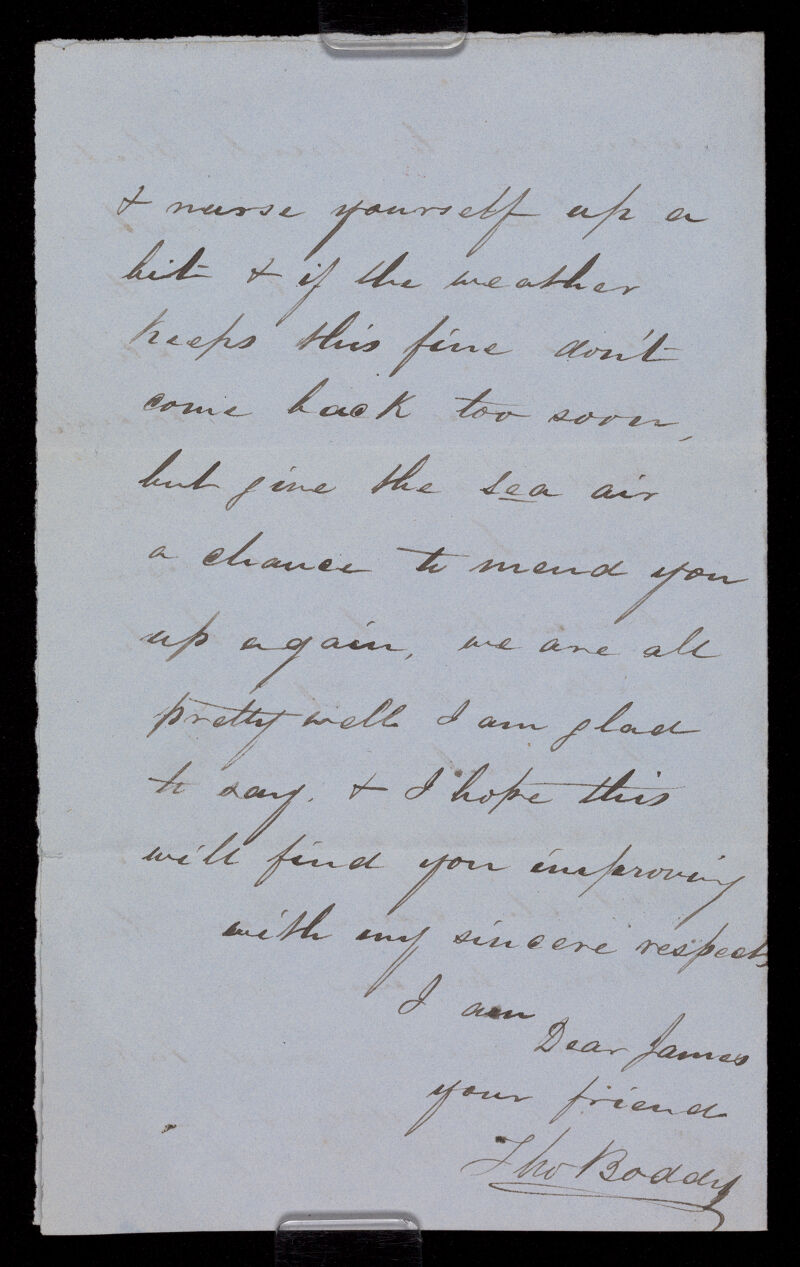 & nurse yourself up a
bit & if the weather
keeps this fine don't
come back too soon,
but give the sea air
a chance to mend you
up again, we are all
pretty well I am glad
to say. & I hope this
will find you improving
with my sincere respects
I am
Dear James
your friend
Tho Boddy